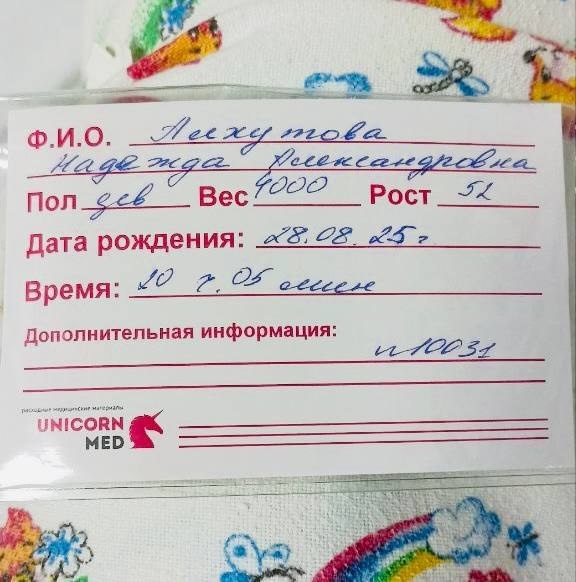 Ф.И.О. Алхутова
Надежда Александровна
Пол дев Вес 4000 Рост 52
Дата рождения: 28.08.25г
Время: 20 ч. 05 мин
Дополнительная информация:
и10031
расходные медицинские материалы
UNICORN
MED